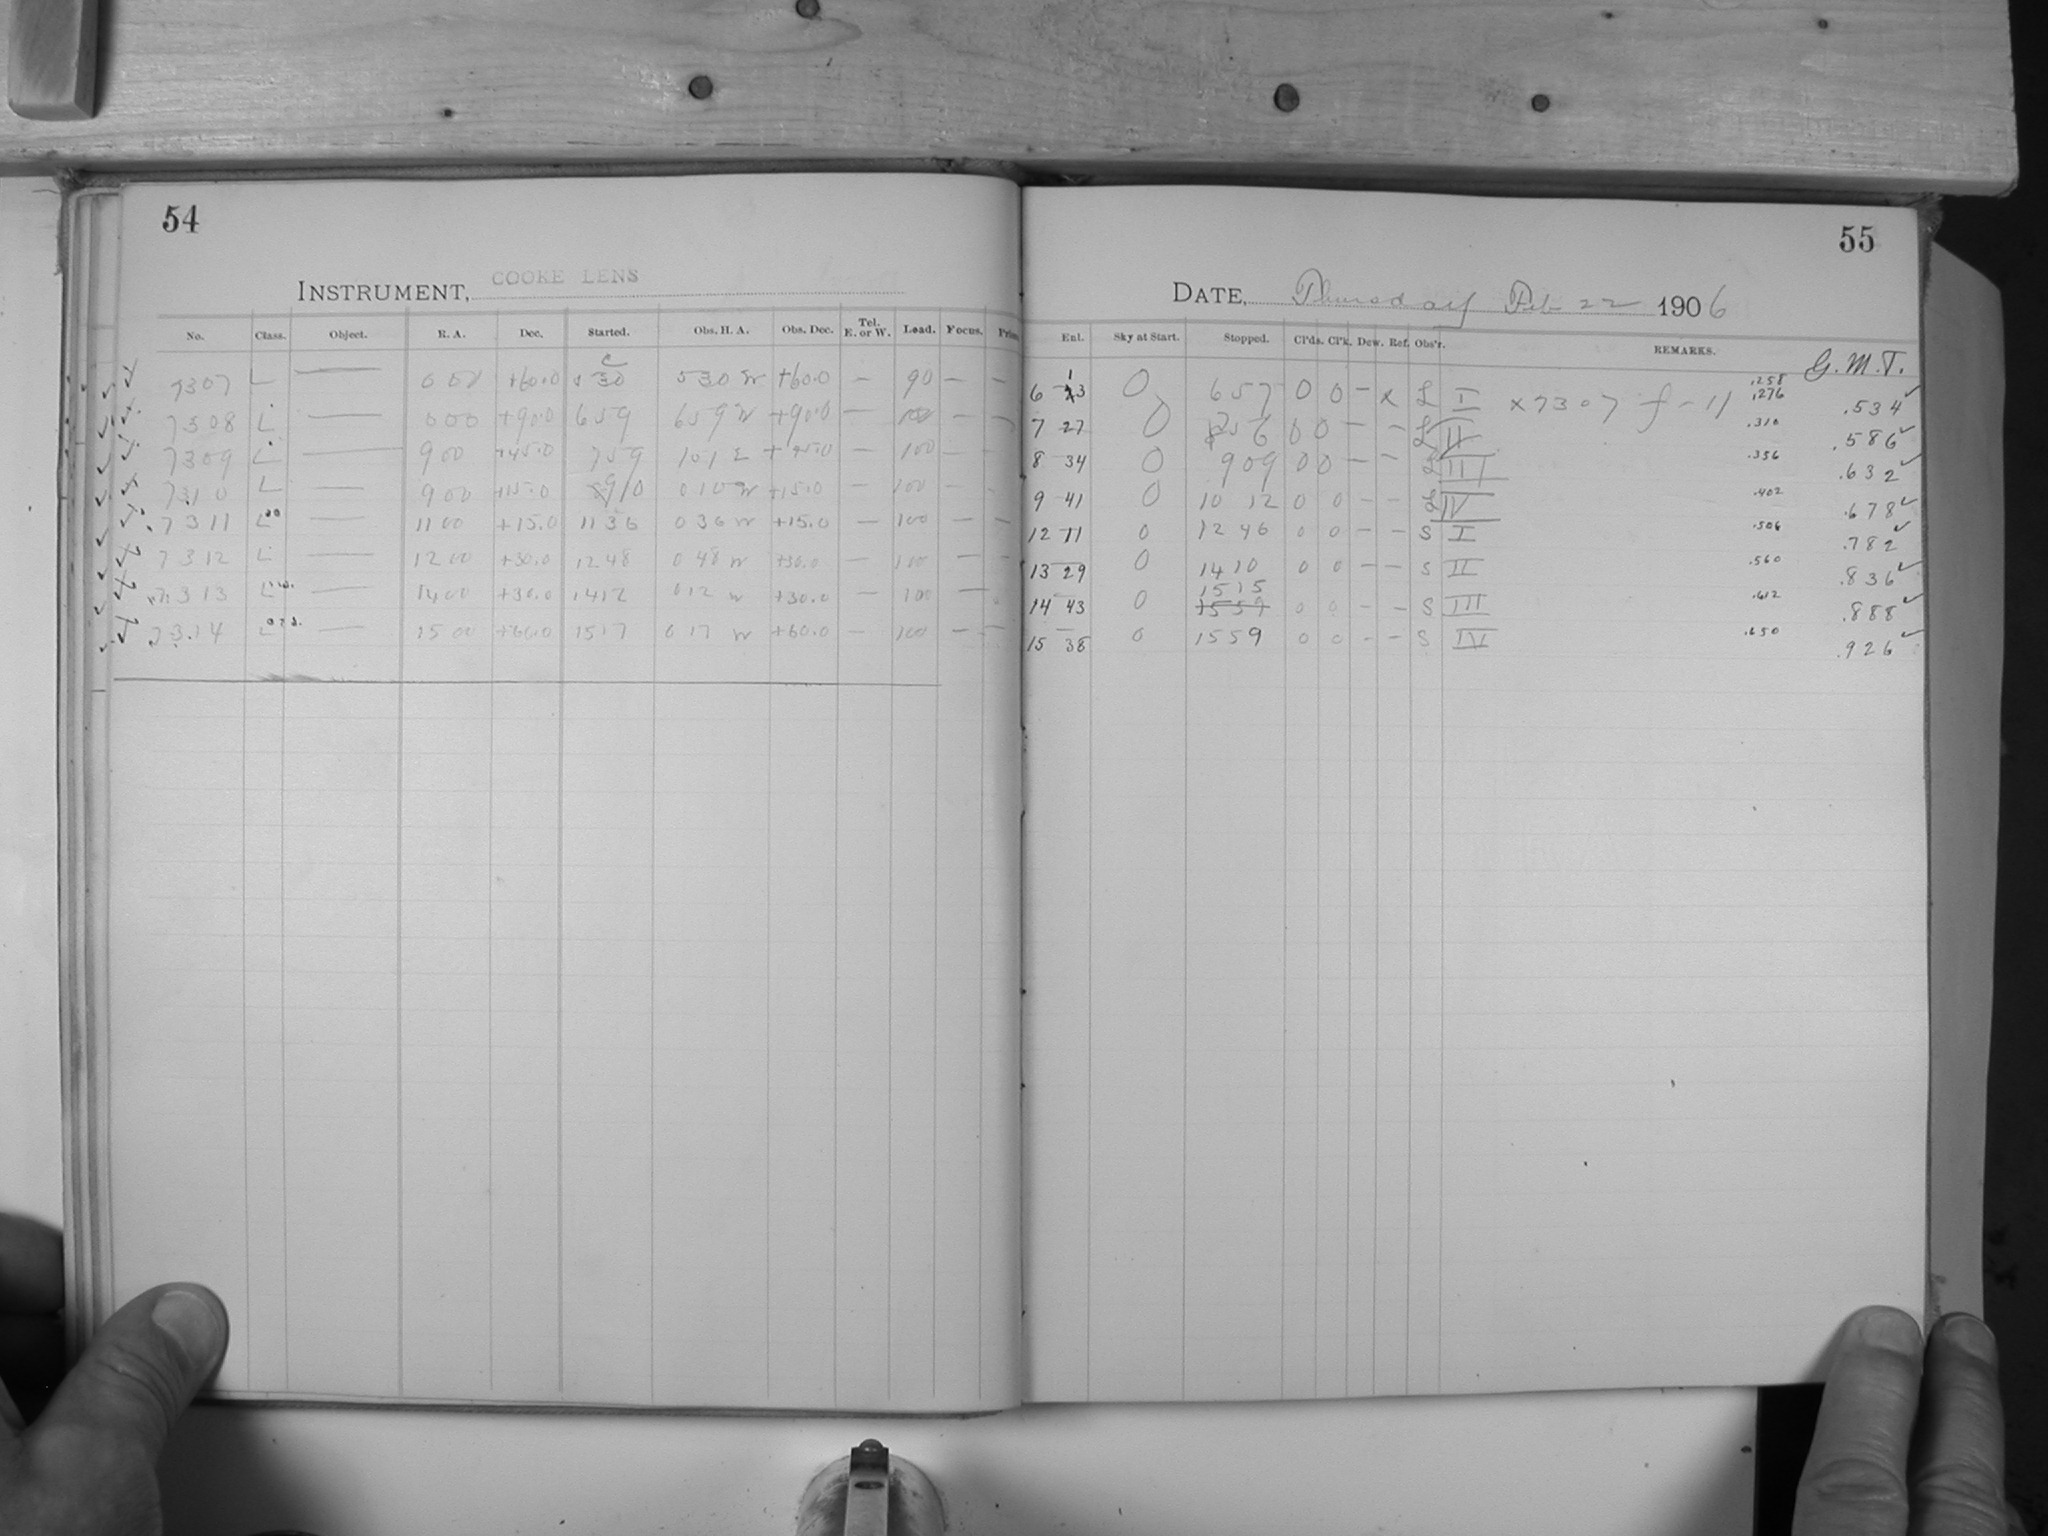 54
INSTRUMENT, COOKE LENS
No. Class. Object. R. A. Dec. Started. Obs. H. A. Obs. Dec. Tel. E. or W. Load. Focus.
7307 L — 0 00 +60.0 5 30 5 30 W +60.0 — 90 — —
7308 L — 0 00 +90.0 6 59 6 59 W +90.0 — 100 — —
7309 L — 9 00 +45.0 7 59 1 01 E +45.0 — 100 — —
7310 L — 9 00 +15.0 9 10 0 10 W +15.0 — 100 — —
7311 L — 11 00 +15.0 11 36 0 36 W +15.0 — 100 — —
7312 L — 12 00 +30.0 12 48 0 48 W +30.0 — 100 — —
7313 L — 14 00 +30.0 14 12 0 12 W +30.0 — 100 —
7314 L — 15 00 +60.0 15 17 0 17 W +60.0 — 100 — —
55
DATE, Thursday Feb 22 1906
Ent. Sky at Start. Stopped. Cl'ds. Cl'k. Dew. Ref. Obs'r. REMARKS. G. M. T.
6 13 0 6 57 0 0 — x L I x 7307 f - 11 .258 .276 .534 ✓
7 27 0 7 56 0 0 — — L II .310 .586 ✓
8 34 0 9 09 0 0 — — L III .356 .632 ✓
9 41 0 10 12 0 0 — — L IV .402 .678 ✓
12 11 0 12 46 0 0 — — S I .506 .782 ✓
13 29 0 14 10 0 0 — — S II .560 .836 ✓
14 43 0 15 15 1559 0 0 — — S III .612 .888 ✓
15 38 0 15 59 0 0 — — S IV .650 .926 ✓